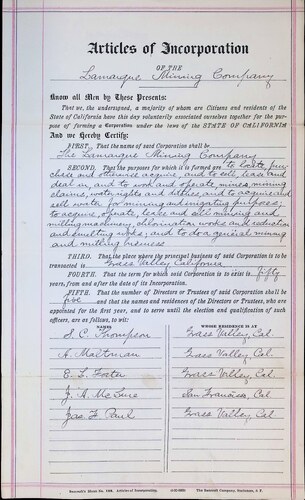 Articles of Incorporation
OF THE
Lamarque Mining Company
Know all Men by These Presents:
That we, the undersigned, a majority of whom are Citizens and residents of the
State of California have this day voluntarily associated ourselves together for the pur-
pose of forming a Corporation under the laws of the STATE OF CALIFORNIA
And we Hereby Certify:
FIRST. That the name of said Corporation shall be
The Lamarque Mining Company
SECOND. That the purposes for which it is formed are to locate, pur-
chase and otherwise acquire, and to sell, lease and
deal in, and to work and operate mines, mining
claims, water rights and ditches, and to acquire and
sell water for mining and irrigating purposes;
to acquire, operate, lease and sell mining and
milling machinery, chlorination works and reduction
and smelting works; and to do a general mining
and milling business
THIRD. That the place where the principal business of said Corporation is to be
transacted is Grass Valley California
FOURTH. That the term for which said Corporation is to exist is fifty
years, from and after the date of its Incorporation.
FIFTH. That the number of Directors or Trustees of said Corporation shall be
five and that the names and residences of the Directors or Trustees, who are
appointed for the first year, and to serve until the election and qualification of such
officers, are as follows, to wit:
NAMES WHOSE RESIDENCE IS AT
S. C. Thompson Grass Valley, Cal.
A. Maltman Grass Valley, Cal.
E. L. Foster Grass Valley, Cal.
J. A. McLure San Francisco, Cal
Jas F Paul Grass Valley, Cal.
Bancroft's Blank No. Articles of Incorporation. The Bancroft Company, Stationers, S. F.